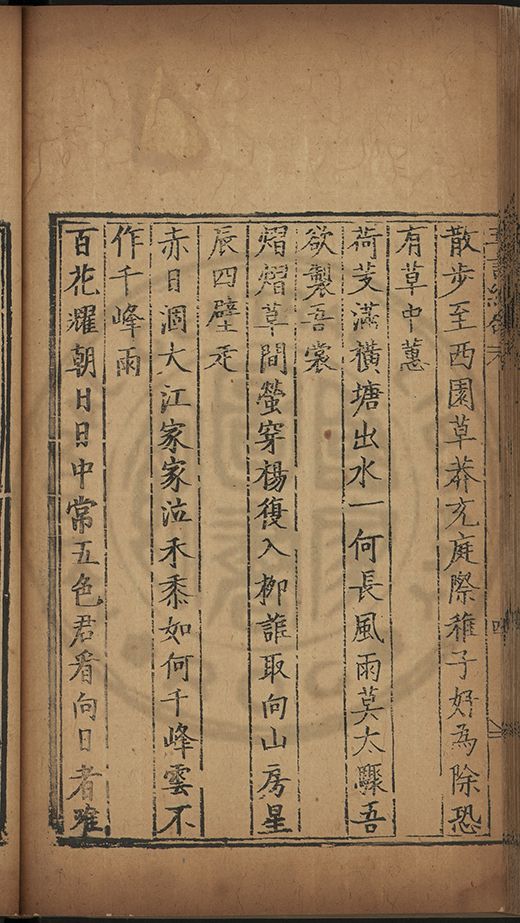 散步至西園草莽充庭際稚子好為除恐
有草中蕙
荷芰滿橫塘出水一何長風雨莫大驟吾
欲製吾裳
熠熠草間螢穿楊復入柳誰取向山房星
辰四壁走
赤日涸大江家家泣禾黍如何千峰雲不
作千峰雨
百花耀朝日日中常五色君看向日者唯